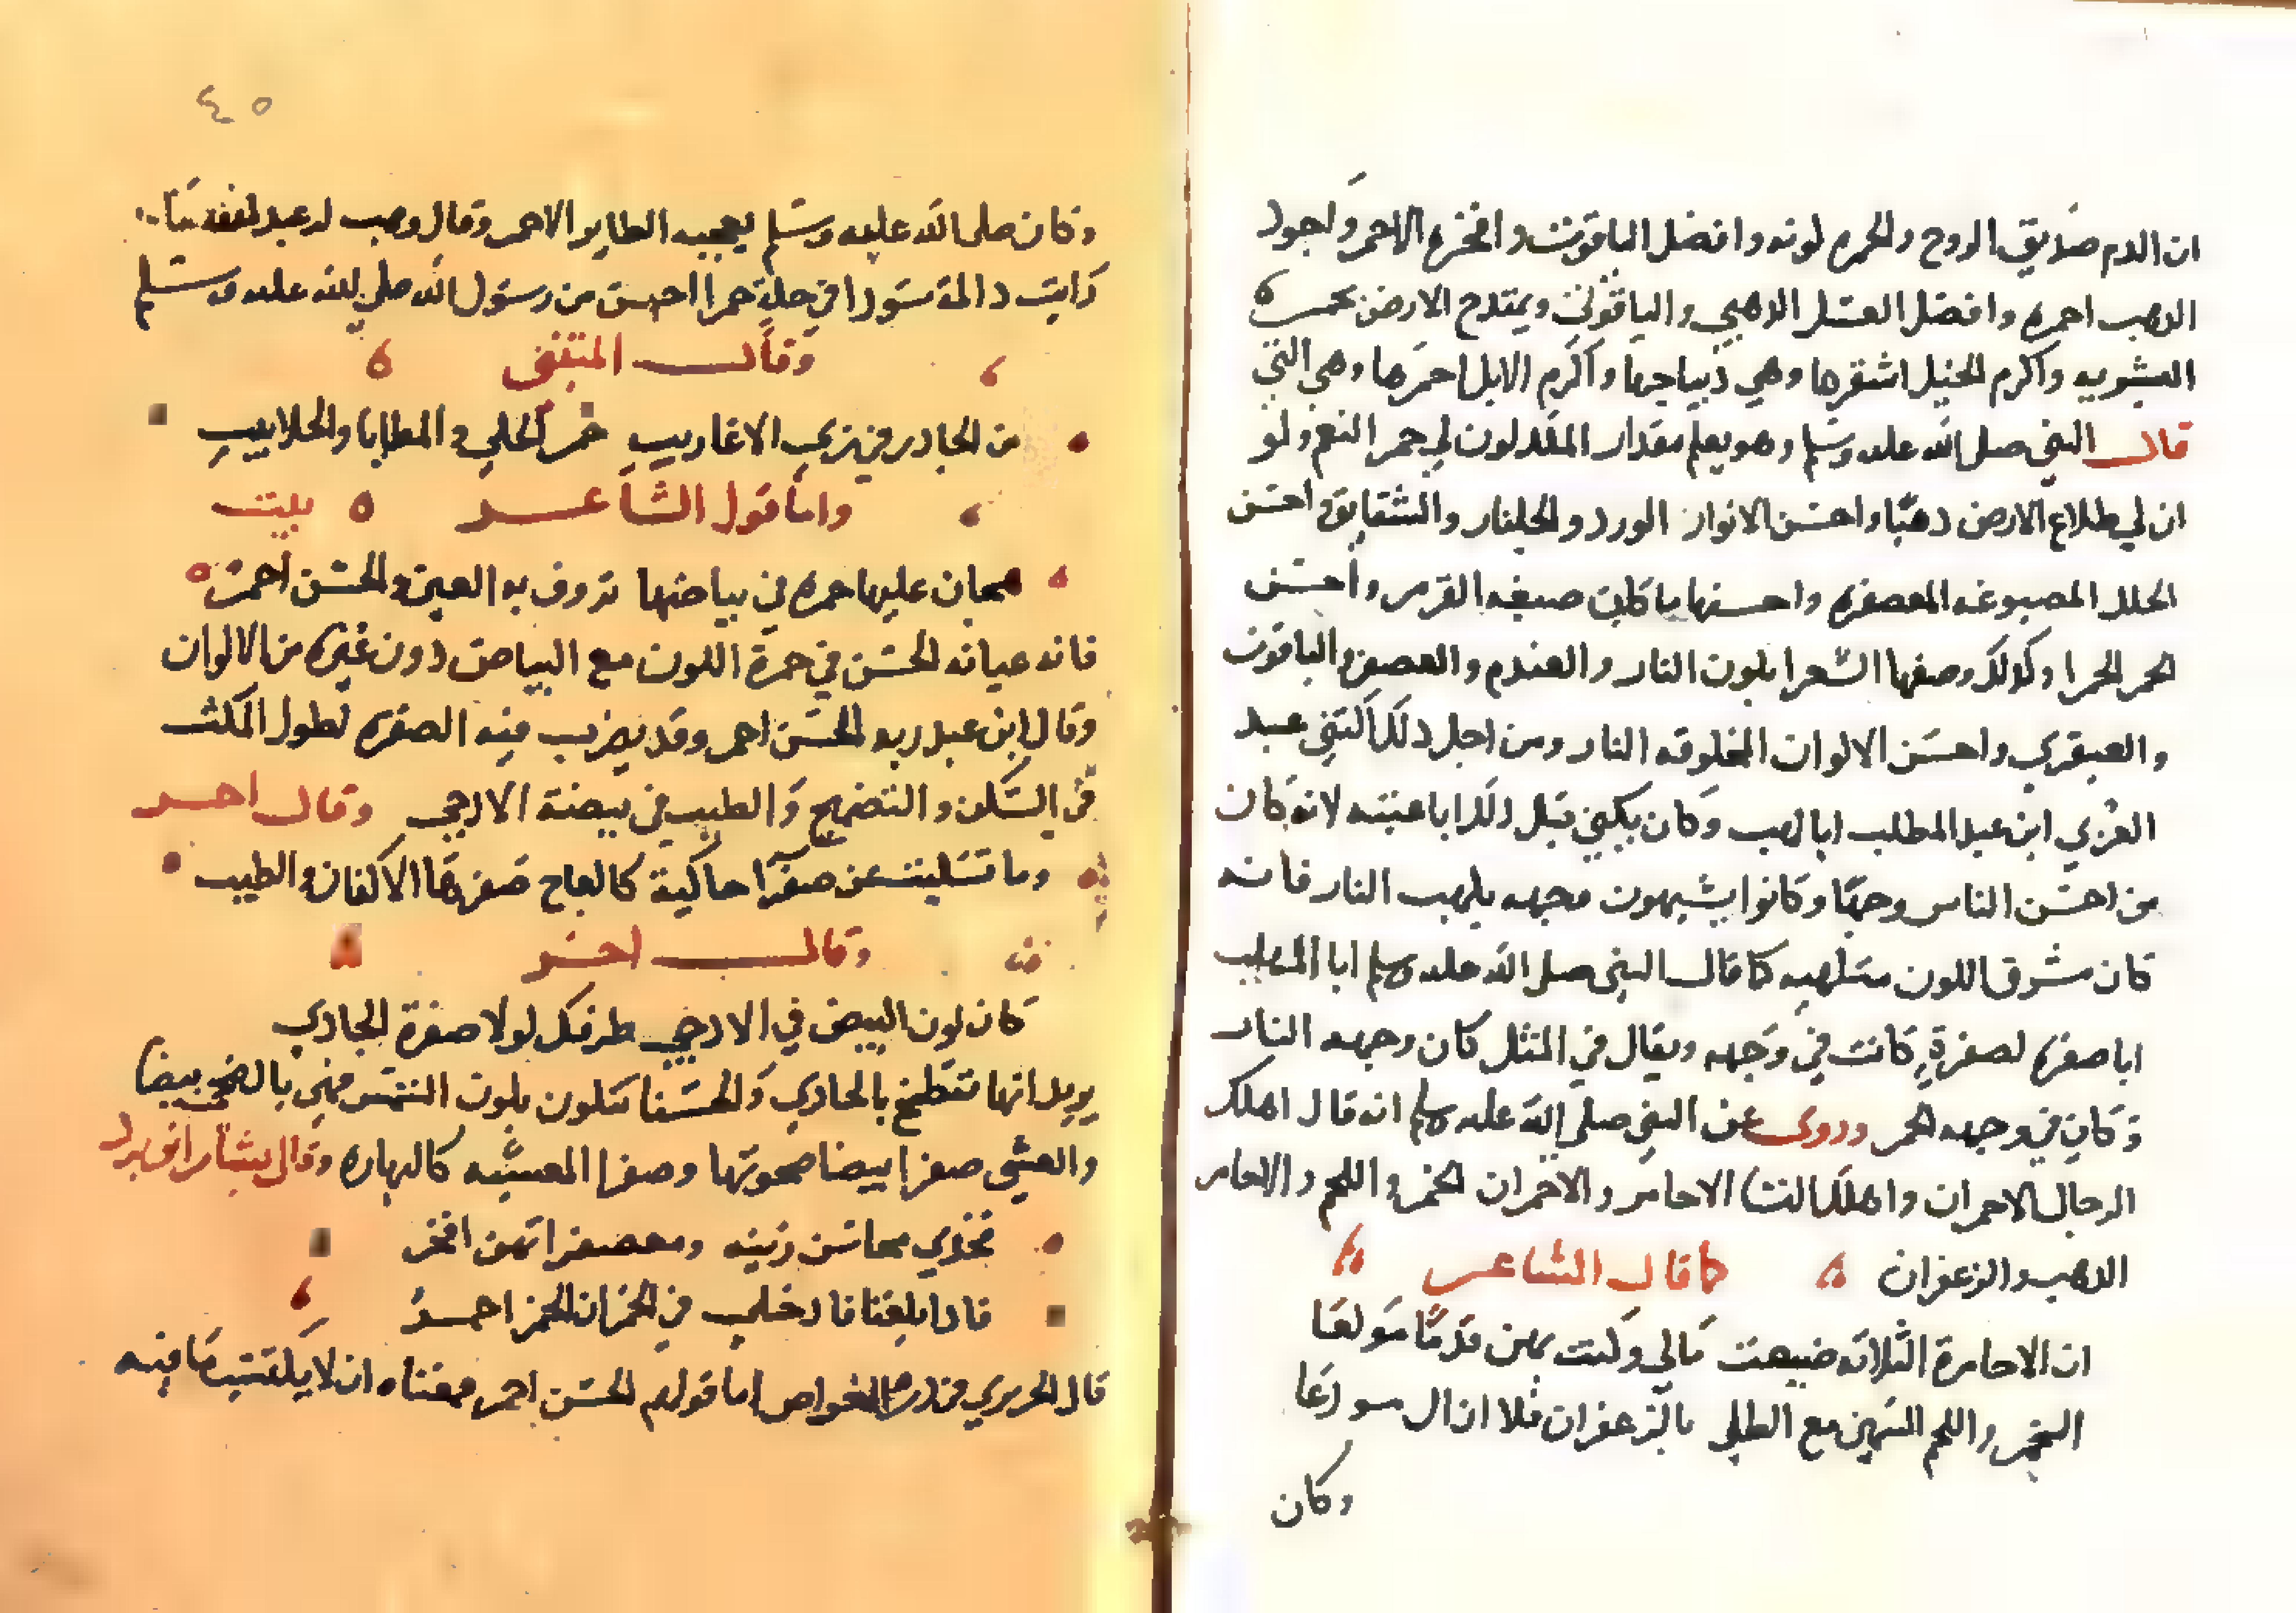 ان الدم صديق الروح والحمره لونه وافضل الياقوت وافخره الاحمر واجود
الدهب احمره وافضل العسل الدهبي والياقوتي ويمتدح الارض بحمره
العشويه واكرم الخيل اشقرها وهي ديباجها واكرم الابل احمرها وهي التي
قال النبي صلى الله عليه وسلم وهو يعلم مقدار المبدلون لي حمر النعم ولو
ان لي طلاع الارض دهبا واحسن الانوار الورد والجلنار والشقايق احسن
الحلل المصبوغه المعصفره واحسنها ما كان صبغه القرمز واحسن
الخمر الحمرا وكذلك وصفها الشعرا بلون النار والعندم والعصفر والياقوت
والعبقري واحسن الالوان المخلوقه النار ومن اجل دلك اكتني عبد
العزي ابن عبد المطلب ابا لهب وكان يكني قبل دلك ابا عتبه لانه كان
من احسن الناس وجها وكانوا يشبهون وجهه بلهب النار فانه
كان مشرق اللون متلهبه كما قال النبي صلى الله عليه وسلم ابا المهلب
ابا صفره لصفرةٍ كانت في وجهه ويقال في المثل كان وجهه النار
وكان في وجهه الجمر وروى عن النبي صلى الله عليه وسلم انه قال اهلك
الرجال الاحمران واهلك النسا الاحامر والاحمران الخمر واللحم والاحامر
الدهب والزعفران كما قال الشاعر
ان الاحامرة الثلاثه ضيعت مالي وكنت بهن قدمًا مولعا
الخمر واللحم السمين مع الطلى بالزعفران فلا ازال مودعا
وكان
٤٥
وكان صلى الله عليه وسلم يعجبه الطاير الاحمر وقال وهب
رايت دا لمة سودا في حلة حمرا احسن من رسول الله صلى الله عليه وسلم
وقال المتنبى
من الجادر في زي الاعاريب حمر الحلي والمطايا والجلابيب
واما قول الشاعر بيت
هجان عليها حمره في بياضها تروق به العين والحسن احمر
فانه عيانه الحسن في حمرة اللون مع البياض دون غيره من الالوان
وقال ابن عبد ربه الحسن احمر وقد يضرب فيه الصفره لطول المكث
في السكن والتضميح والطيب في بيضة الادحي وقال اخر
وما تسليت عن صفرا حاكية كالعاج صفرها الاكفان والطيب
وقال اخر
كان لون البيض في الادحي طرفك لولا صفرة الجادي
يريد انها تتطلخ بالجادي والحسنا تتلون بلون الشمس فهي بالضحى بيضا
والعشي صفرا بيضا ضحوتها وصفرا العشيه كالبهاره وقال بشار اخر برد
فخذي محاسن زينه ومعصفراتهن افخر
فادا بلغنا فادخلي في الخمر ان الحمر احمر
قال الحريري في دره الغواص اما قولهم الحسن احمر فمعناه ان لا يكتسب ما فيه